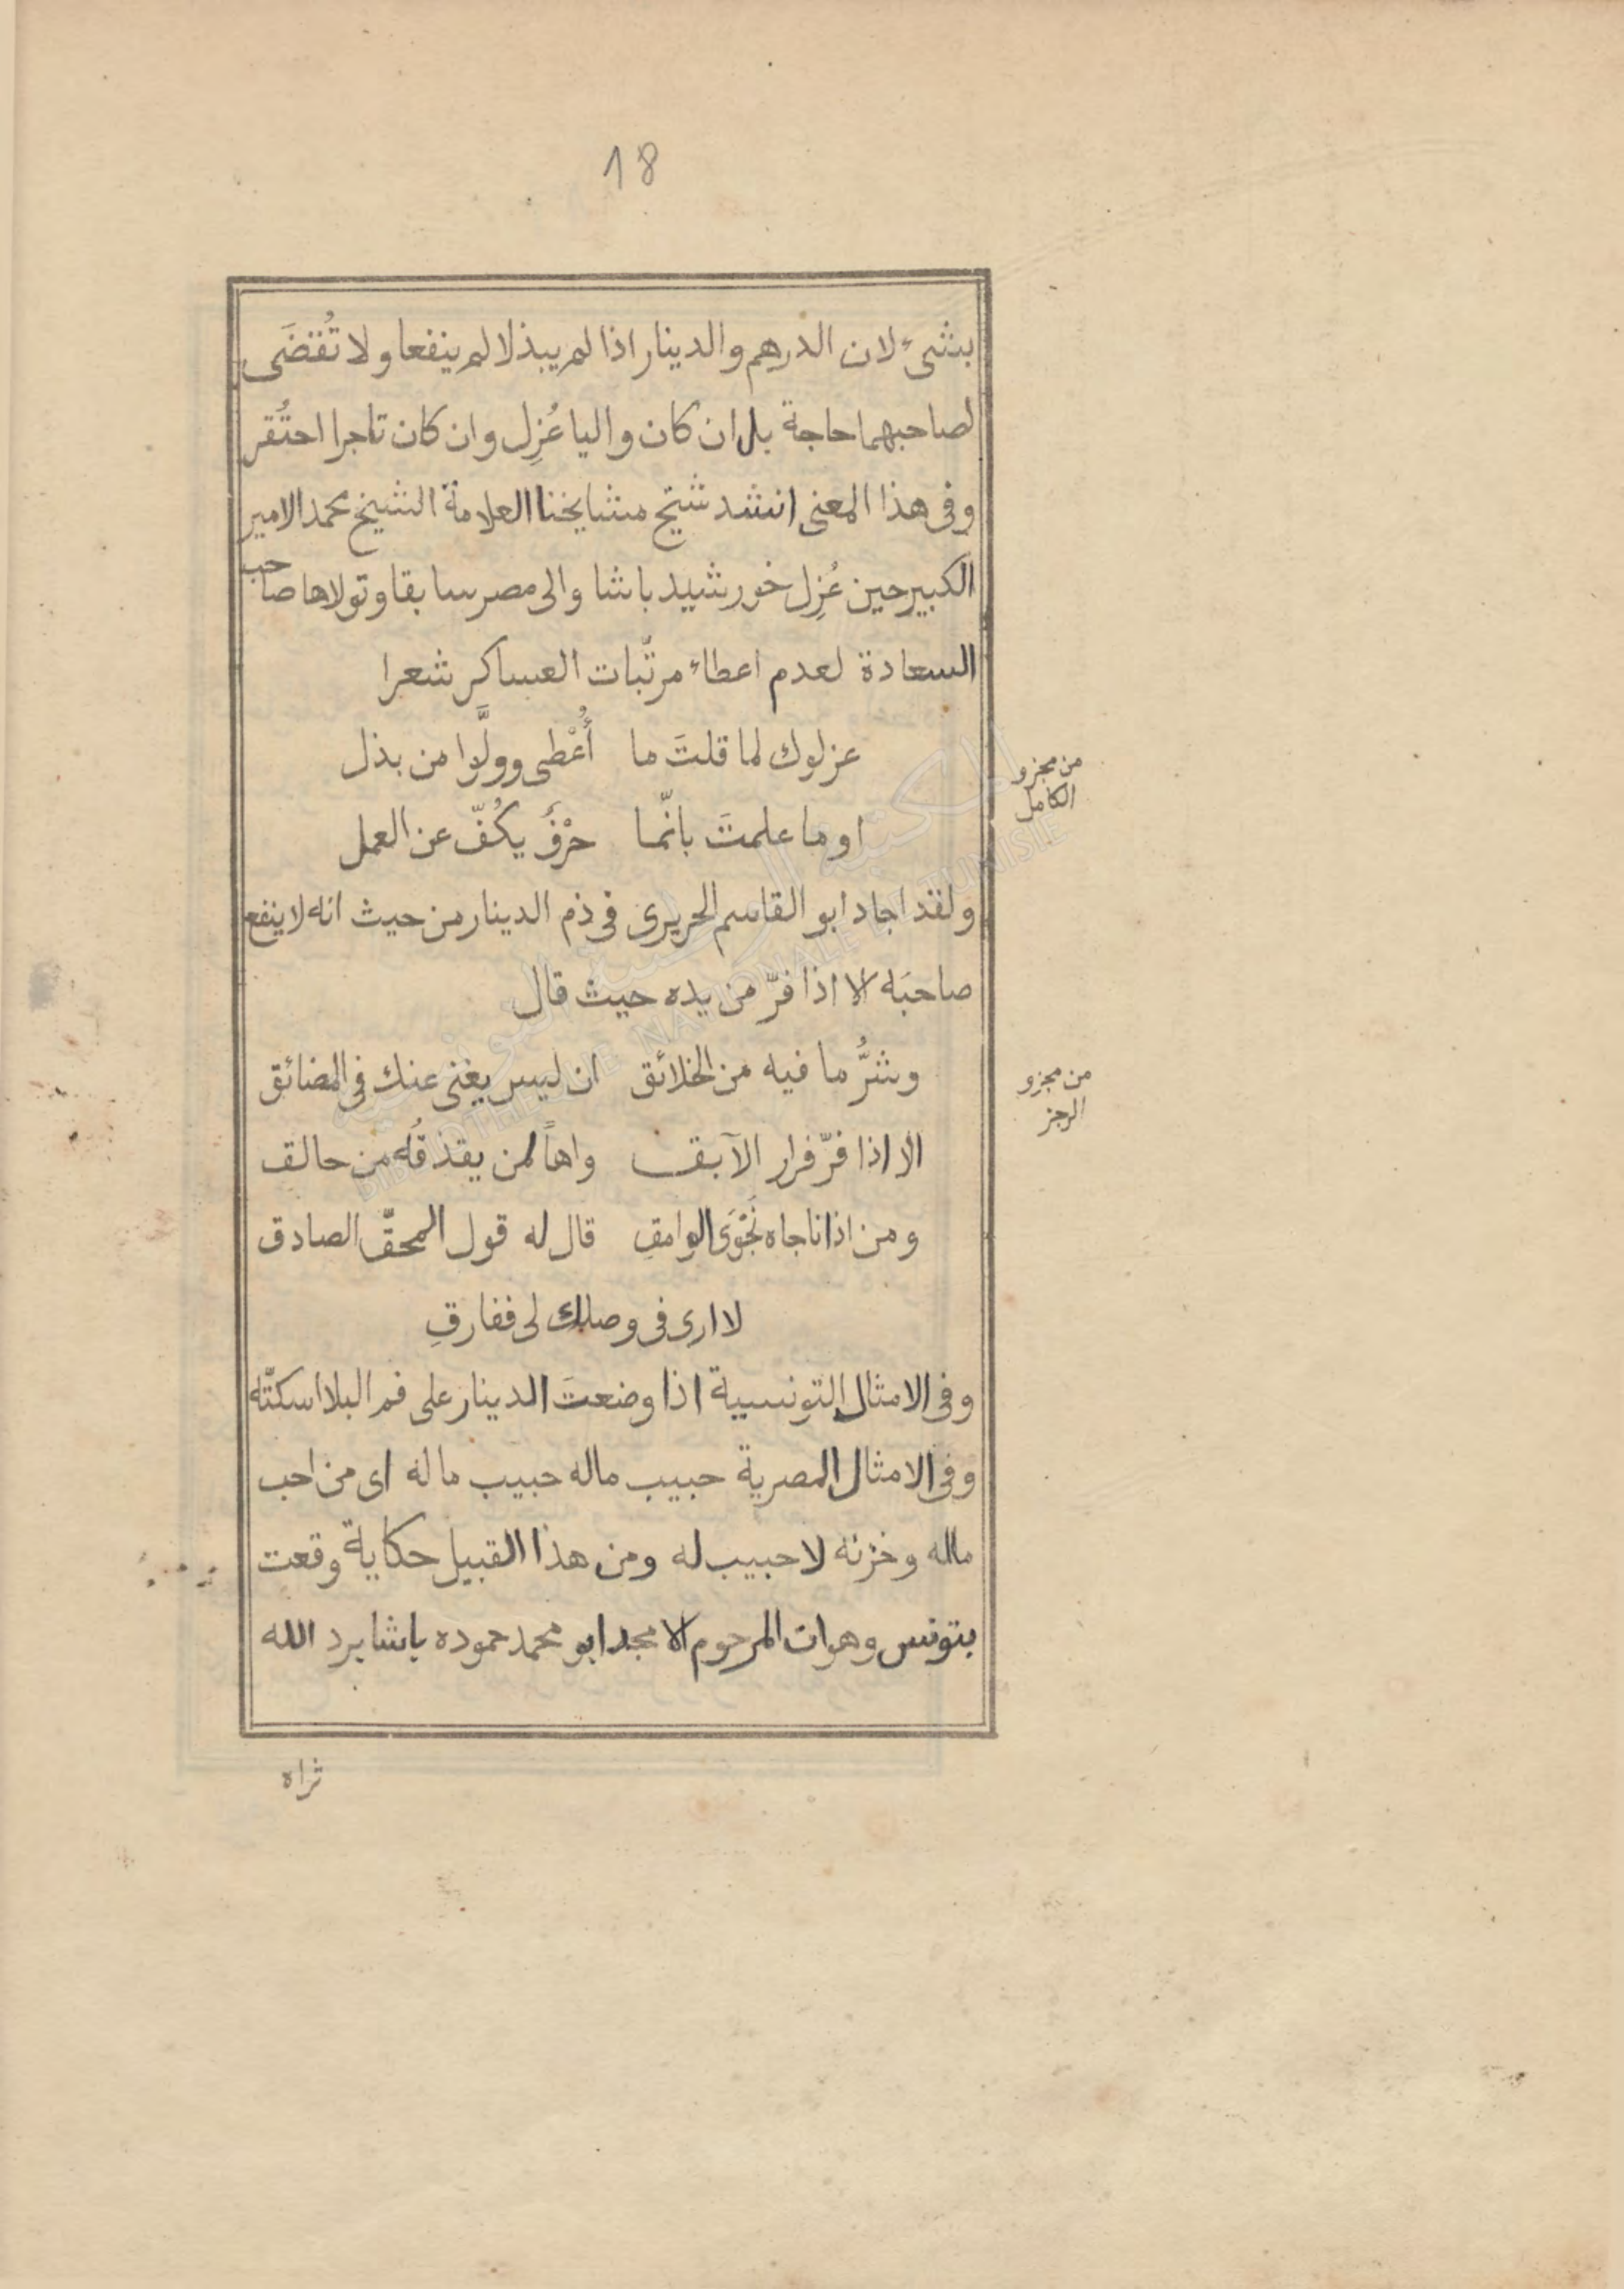 18
بشىء لان الدرهم والدينار اذا لم يبذلا لم ينفعا ولا تُقضَى
لصاحبهما حاجة بل ان كان واليا عُزِل وان كان تاجرا احتُقر
وفى هذا المعنى انشد شيخ مشايخنا العلامة الشيخ محمد الامير
الكبير حين عُزِل خورشيد باشا والى مصر سابقا وتولاها صاحب
السعادة لعدم اعطاء مرتّبات العساكر شعرا
عزلوك لما قلتَ ما أُعْطى وولَّوا من بذل
من مجزو
الكامل
او ما علمتَ بانّما حرْفٌ يكُفّ عن العمل
ولقد اجاد ابو القاسم الحريرى فى ذم الدينار من حيث انه لا ينفع
صاحبَه الا اذا فرّ من يده حيث قال
وشرُّ ما فيه من الخلائق ان ليس يغنى عنك فى المضائق
من مجزو
الرجز
الا اذا فرّ فرار الآبق واهاً لمن يقذفُه من حالق
ومن اذا ناجاه نَجْوَى الوامقِ قال له قول المحقّ الصادق
لا ارى فى وصلك لى ففارقِ
وفى الامثال التونسية اذا وضعتَ الدينار على فم البلا اسكتّه
وفى الامثال المصرية حبيب ماله حبيب ما له اى من احب
ماله وخزنه لا حبيب له ومن هذا القبيل حكاية وقعت
بتونس وهو ان المرحوم الامجد ابو محمد حموده باشا برد الله
ثراه
المكتبة الوطنية التونسية
BIBLIOTHEQUE NATIONALE DE TUNISIE